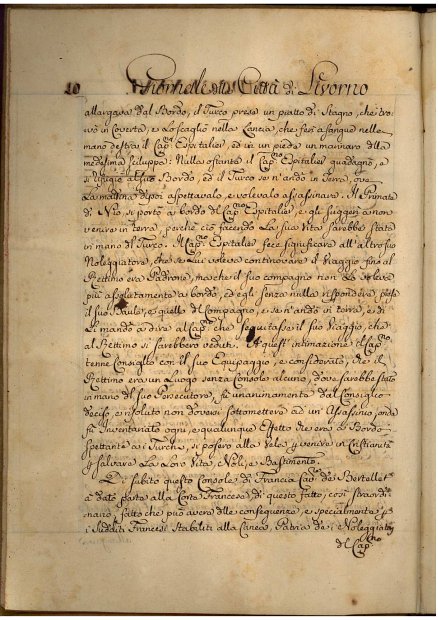 10 Giornale della Città di Livorno
allargava dal Bordo, il Turco prese un piatto di Stagno, che tro-
vò in Coverta, e lo scagliò nella Lancia, che ferì a sangue nella
mano destra il Cap.no Espitalier, ed in un piede un marinaro della
medesima sciluppa: Nulla ostante il Cap.no Espitalier guadagnò, e
si rifugiò al suo Bordo, ed il Turco se n'andò in Terra, ove
la mattina dipoi aspettavalo, e volevalo assassinare. Il Primate
di Nio, si portò a bordo del Cap.no Espitalier, e gli suggerì a non
venire in terra, perchè ciò facendo la sua Vita sarebbe stata
in mano del Turco. Il Cap.no Espitalier fece significare all'altro suo
Noleggiatore, che se lui voleva continovare il Viaggio fino al
Rettimo era Padrone, ma che il suo compagno non lo voleva
più assolutamente a bordo, ed egli senza nulla rispondere, prese
il suo Baule, e quello del Compagno, e se n'andò in terra, e di
lì mandò a dire al Cap.no che seguitasse il suo Viaggio, che
al Rettimo si sarebbero veduti. A quest'intimazione il Cap.no
tenne Consiglio con il suo Equipaggio, e considerato, che il
Rettimo era un Luogo senza Console alcuno, dove sarebbe stato
in mano del suo Persecutore, fu unanimamente dal Consiglio
deciso, e risoluto non doversi sottomettere ad un'Assassino, onde
fù Inventariato ogni, e qualunque Effetto che era a Bordo
spettante a i Turchi, si posero alla Vela, e vennero in Cristianità
p salvare la loro Vita, Noli, e Bastimento.
E subito questo Console di Francia Cav.r de Bertellet
à dato parte alla Corte Francese di questo fatto, così straordi-
nario, fatto che può avere delle conseguenze, e specialmente p
i Sudditi Francesi stabiliti alla Canea, Patria de i Noleggiatori
del Cap.no